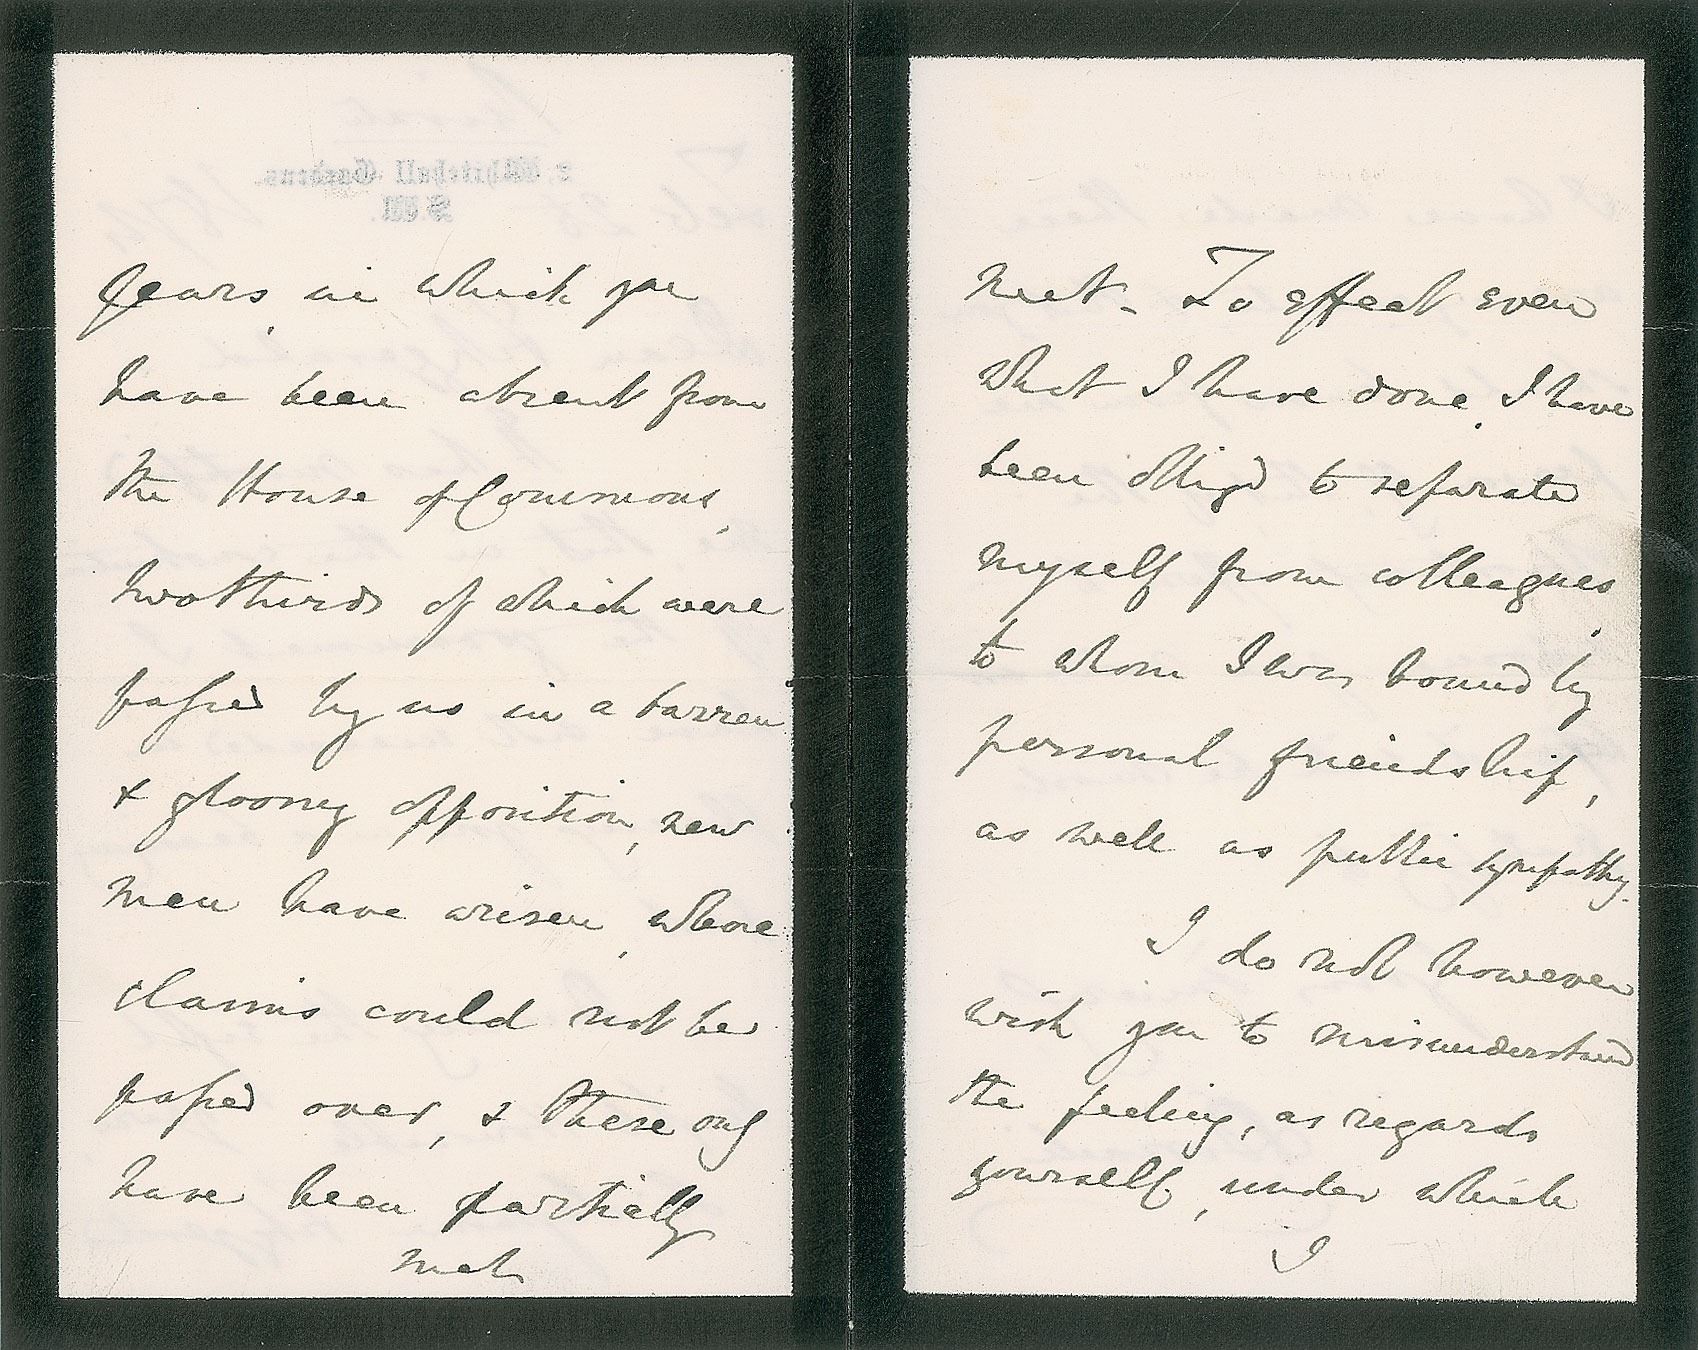 years, in which you
have been absent from
the House of Commons,
two thirds of which were
passed by us in a barren
& gloomy opposition, new
men have arisen, whose
claims could not be
passed over, & these only
have been partially
met.
met. To effect even
what I have done, I have
been oblig'd to separate
myself from colleagues,
to whom I was bound by
personal friendship,
as well as public sympathy.
I do not however
wish you to misunderstand
the feeling, as regards
yourself, under which
I